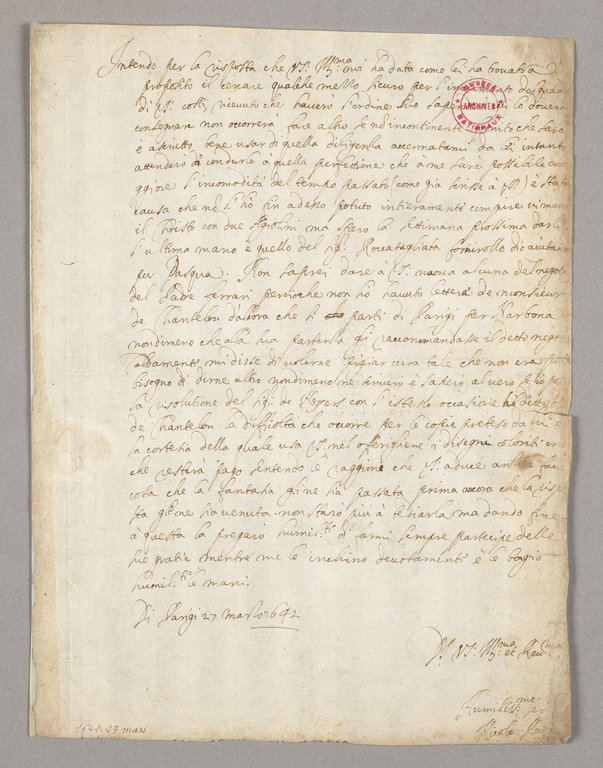 Intendo per la risposta che VS. Ill.ma mi ha data come lei ha trovato à
proposito il cercare qualche mezzo sicuro per
di costì, ricevuto che haverò l'ordine suo
consegnar non occorrerà fare altro se non incontinente che sarà
e asciutto bene usar di quella diligenza accennatami da lei intanto
attenderò di condurlo à quella perfettione che à me sarà possibile
l'incomodità del tempo passato come già scrissi à VS) è stata
causa che no l'hò fin adesso potuto intieramente compire vi manca
il Christo con due Apostoli ma spero la settimana prossima darli
l'ultima mano e quello del sig. Roccatagliata fornirollo di avantaggio
per Pasqua. Non saprei dare à VS. nuova alcuna del negotio
del Padre ferrari perciochè non ho havuto lettere de monsieur
de Chantelou dallora che si partì di Parigi per Narbona
nondimeno che alla sua partenza gli raccomandasse il detto negotio
caldamente, mi disse di volerne pigliar cura tale che non era
bisogno di dirne altro nondimeno ne scriverò e saperò al vero
la risolutione del sig. de Noyers con l'istessa occasione ho detto
de Chantelou la difficoltà che occorre per le copie pretese da lui e
la cortesia della quale usa VS. nel offerirgliene i disegni coloriti
che resterà pago sentendo le raggioni che VS. aduce
cosa che la fantasia gline sia passata prima ancora che la
ta gline sia venuta. non starò più à tediarla ma dando fine
à questa la pregarò humil.te di farmi sempre partecipe delle
sue gratie mentre me le inchino devotamente e le bagio
humil.te le mani.
Di Parigi 27 marzo 1642
Di VS. Ill.ma et Rev.ma
Humiliss.mo
1642. 27 mars
MUSÉES
ARCHIVES
NATIONAUX